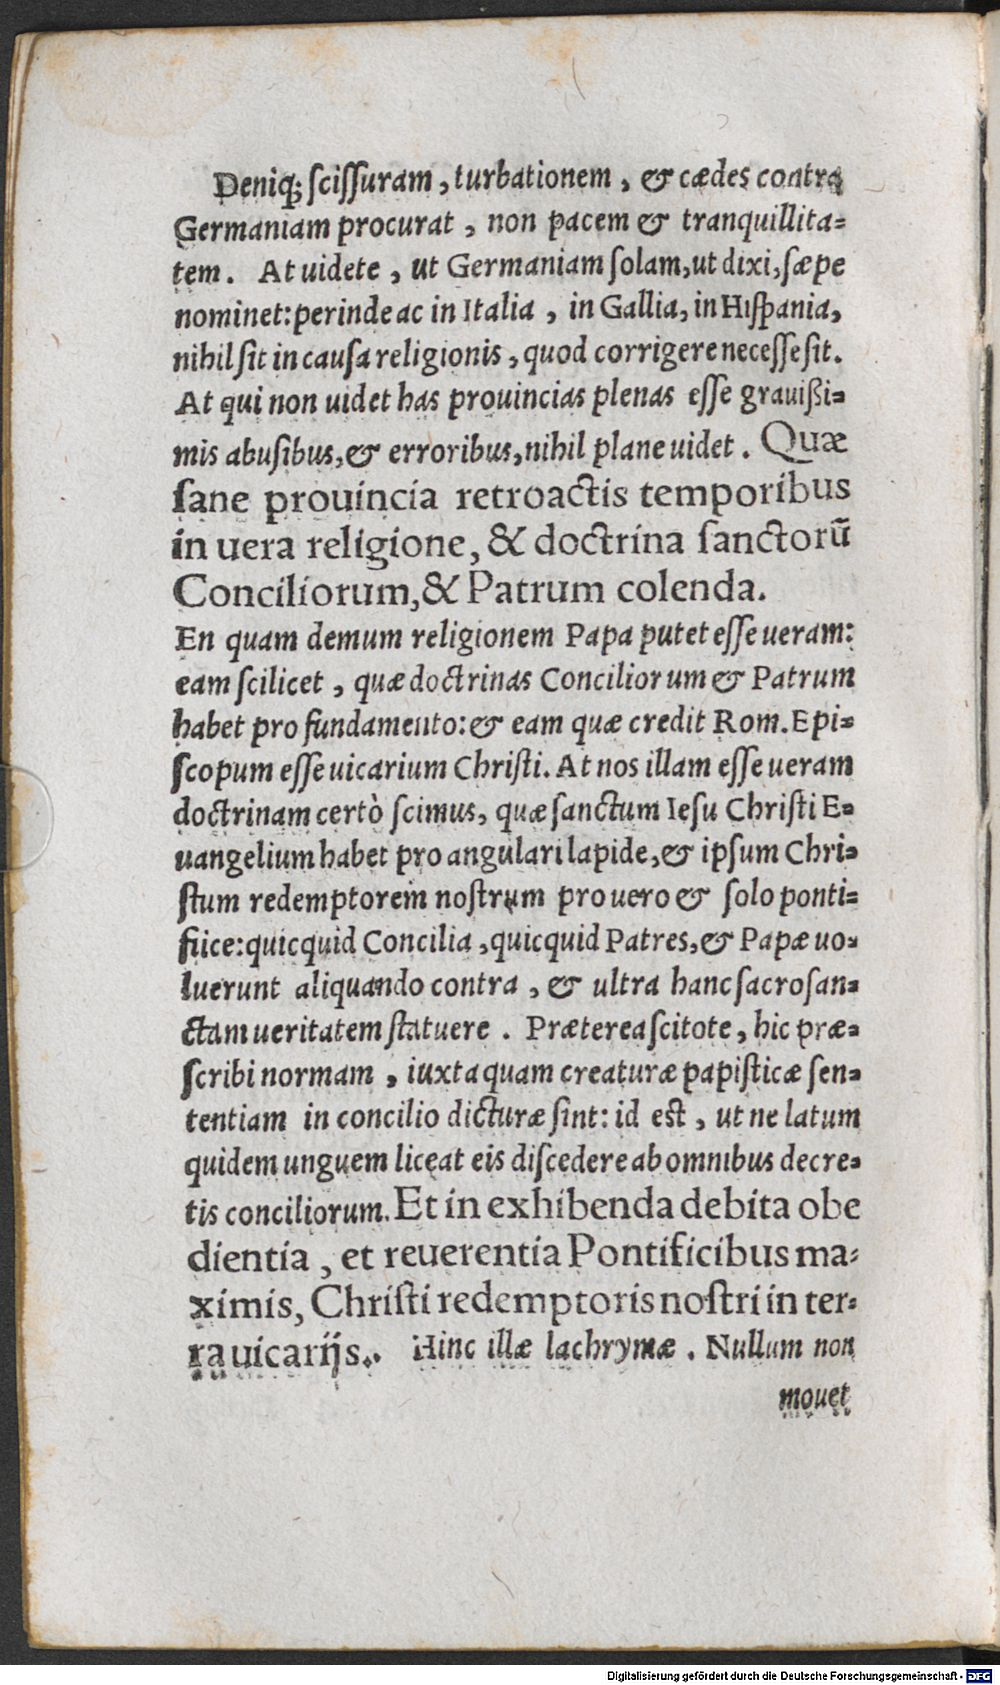 Deniq; ſciſſuram, turbationem, & cædes contra
Germaniam procurat, non pacem & tranquillita=
tem. At uidete, ut Germaniam ſolam, ut dixi, ſæpe
nominet: perinde ac in Italia, in Gallia, in Hiſpania,
nihil ſit in cauſa religionis, quod corrigere neceſſe ſit.
At qui non uidet has prouincias plenas eſſe grauißi=
mis abuſibus, & erroribus, nihil plane uidet. Quæ
ſane prouincia retroactis temporibus
in uera religione, & doctrina ſanctorū
Conciliorum, & Patrum colenda.
En quam demum religionem Papa putet eſſe ueram:
eam ſcilicet, quæ doctrinas Conciliorum & Patrum
habet pro fundamento: & eam quæ credit Rom. Epi=
ſcopum eſſe uicarium Chriſti. At nos illam eſſe ueram
doctrinam certò ſcimus, quæ ſanctum Ieſu Chriſti E=
uangelium habet pro angulari lapide, & ipſum Chri=
ſtum redemptorem noſtrum pro uero & ſolo ponti=
fiice: quicquid Concilia, quicquid Patres, & Papæ uo=
luerunt aliquando contra, & ultra hanc ſacroſan=
ctam ueritatem ſtatuere. Præterea ſcitote, hic præ=
ſcribi normam, iuxta quam creaturæ papiſticæ ſen=
tentiam in concilio dicturæ ſint: id est, ut ne latum
quidem unguem liceat eis diſcedere ab omnibus decre=
tis conciliorum. Et in exhibenda debita obe
dientia, et reuerentia Pontificibus ma=
ximis, Chriſti redemptoris noſtri in ter=
ra uicarijs. Hinc illæ lachrymæ. Nullum non
mouet
Digitalisierung gefördert durch die Deutsche Forschungsgemeinschaft - DFG